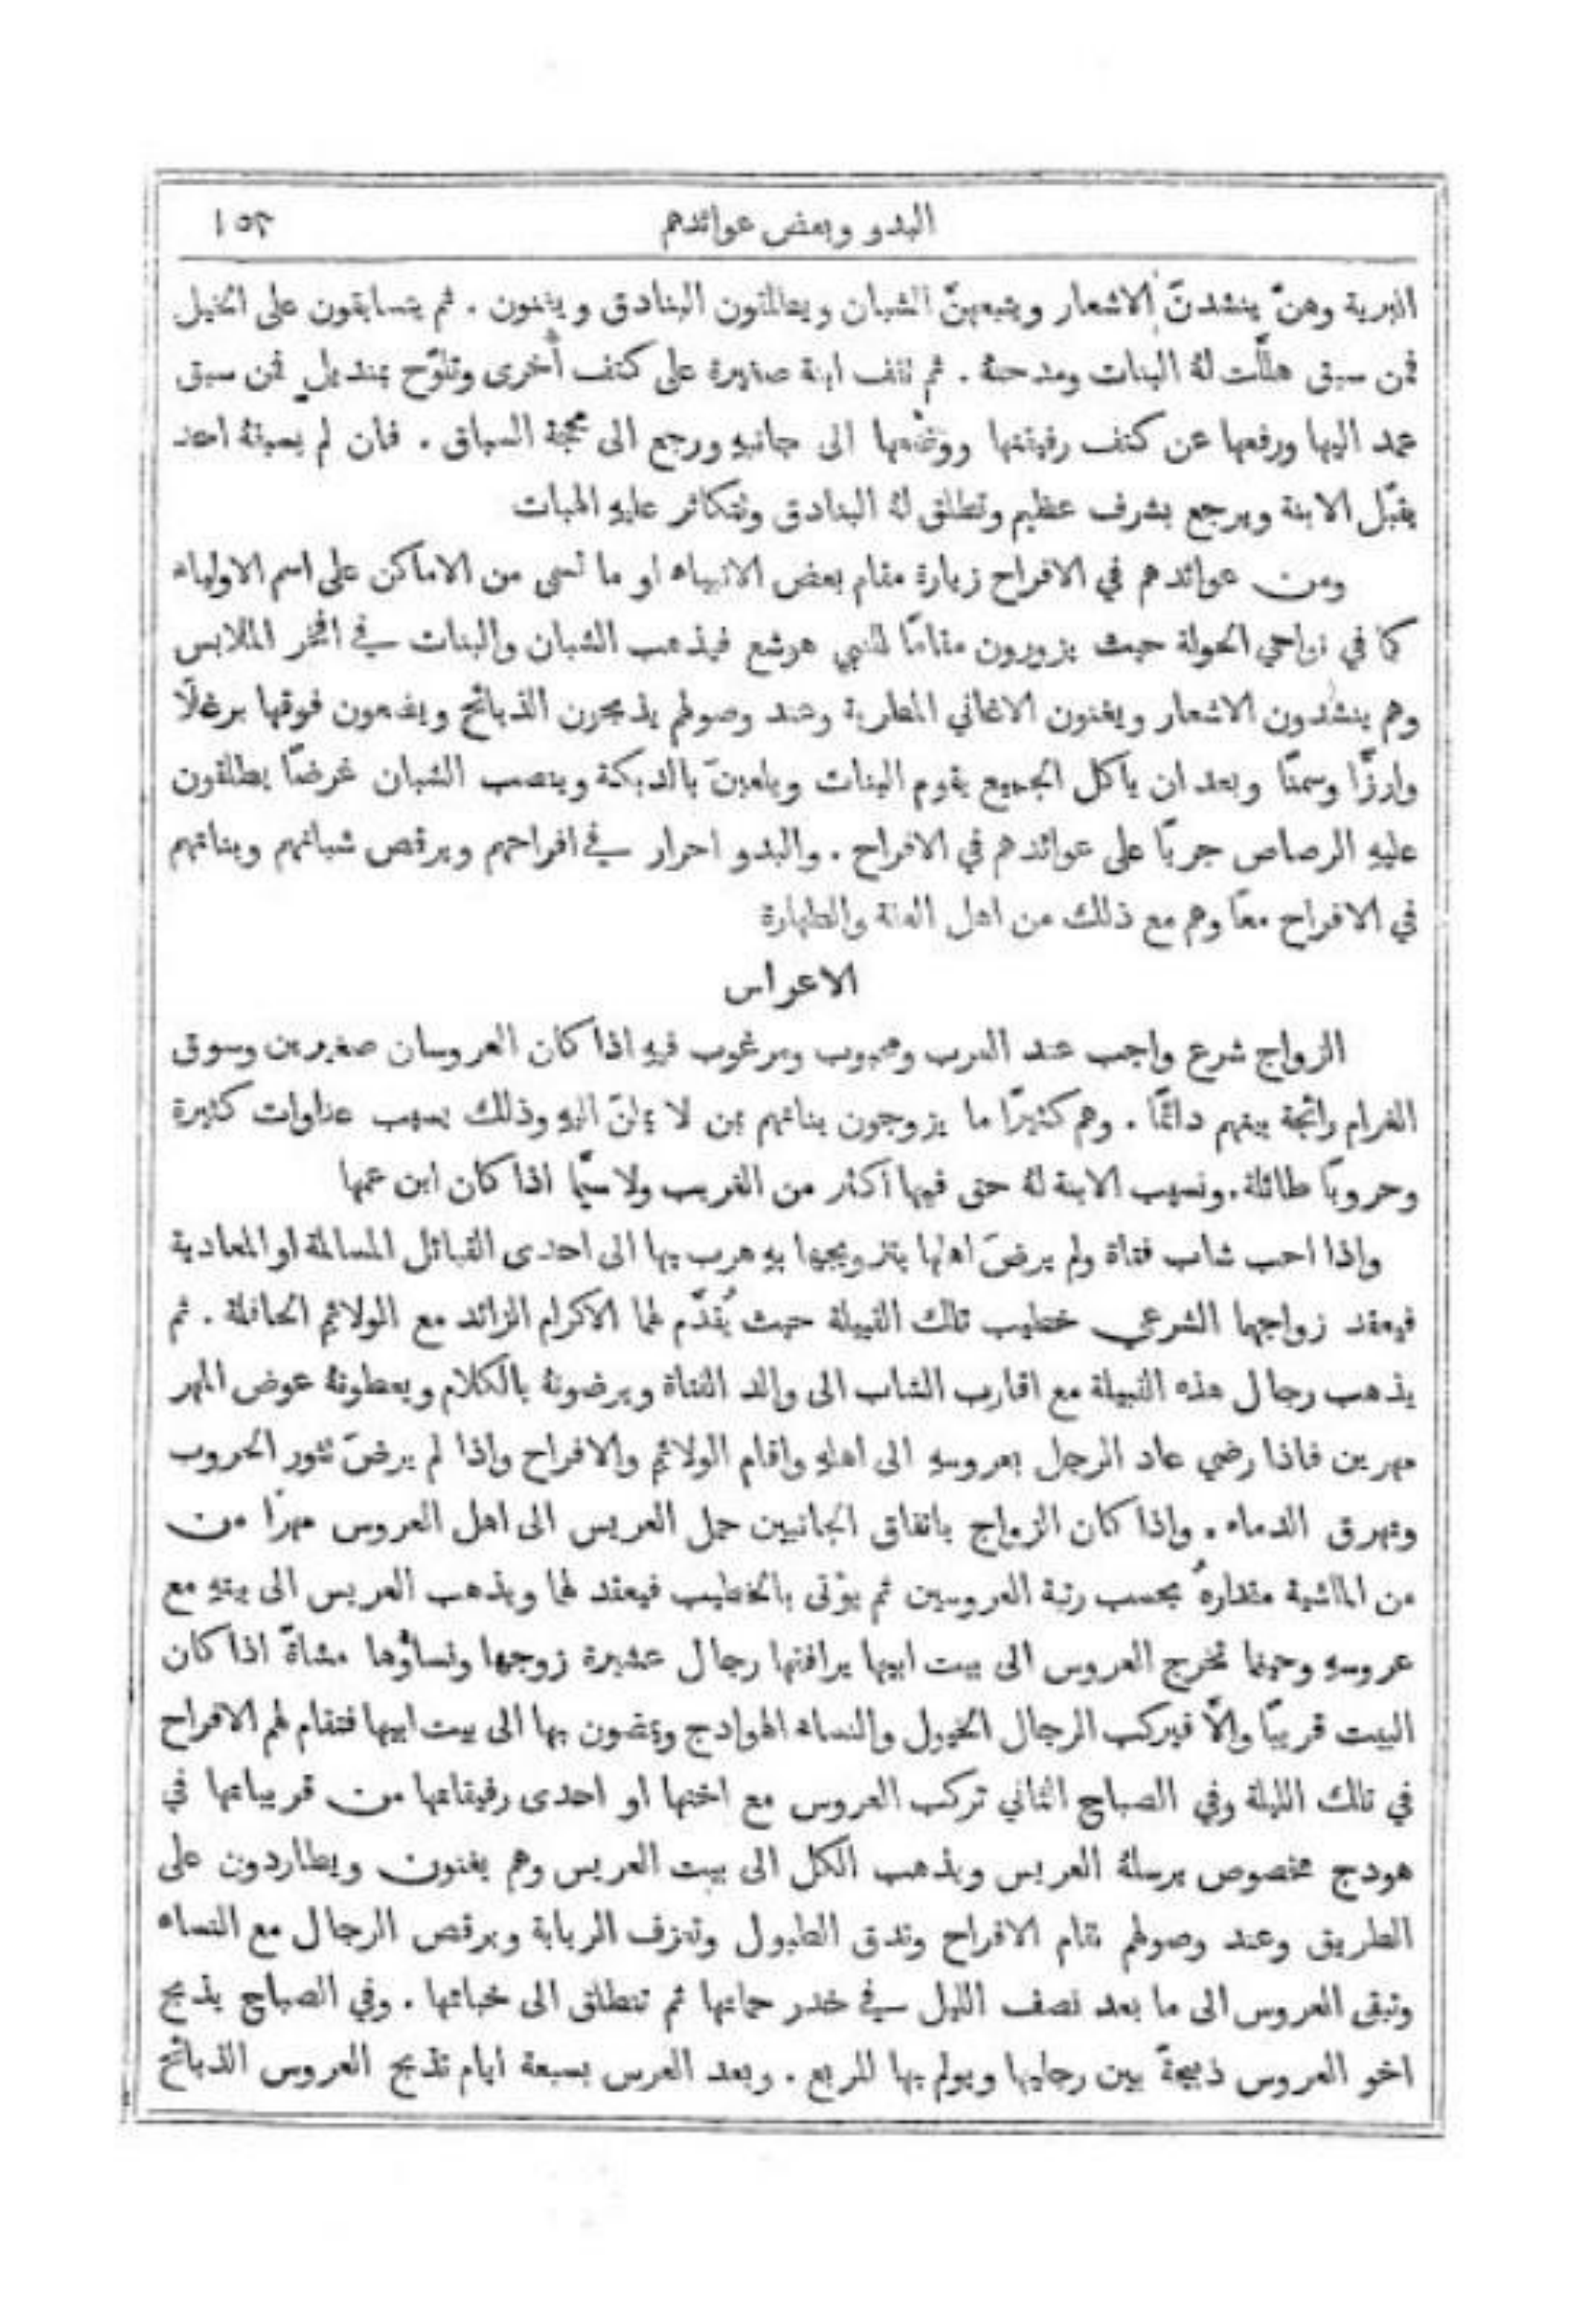 البدو وبعض عوائدهم ١٥٣
البرية وهنّ ينشدنّ الاشعار ويتبعهنّ الشبان ويطلقون البنادق ويغنون . ثم يتسابقون على الخيل
فمن سبق هللّت لهُ البنات ومدحنهُ . ثم تقف ابنة صغيرة على كتف أُخرى وتلوّح بمنديل فمن سبق
عمد اليها ورفعها عن كتف رفيقتها ووضعها الى جانبهِ ورجع الى محجة السباق . فان لم يسبقهُ احد
يقبّل الابنة ويرجع بشرف عظيم وتطلق لهُ البنادق وتتكاثر عليهِ الهبات
ومن عوائدهم في الافراح زيارة مقام بعض الانبياء او ما تسمى من الاماكن على اسم الاولياء
كما في نواحي الحولة حيث يزورون مقامًا للنبي هوشع فيذهب الشبان والبنات في افخر الملابس
وهم ينشدون الاشعار ويغنون الاغاني المطربة وعند وصولهم يذبحون الذبائح ويضعون فوقها برغلًا
وارزًّا وسمنًا وبعد ان ياكل الجميع يقوم البنات ويلعبنَ بالدبكة وينصب الشبان غرضًا يطلقون
عليهِ الرصاص جريًا على عوائدهم في الافراح . والبدو احرار في افراحهم ويرقص شبانهم وبناتهم
في الافراح معًا وهم مع ذلك من اهل العفة والطهارة
الاعراس
الزواج شرع واجب عند العرب ومحبوب ومرغوب فيهِ اذا كان العروسان صغيرين وسوق
الغرام رائجة بينهم دائمًا . وهم كثيرًا ما يزوجون بناتهم بمن لا يملنَ اليهِ وذلك يسبب عداوات كثيرة
وحروبًا طائلة . ونسيب الابنة لهُ حق فيها اكثر من الغريب ولا سيّما اذا كان ابن عمها
واذا احب شاب فتاة ولم يرضَ اهلها بتزويجها بهِ هرب بها الى احدى القبائل المسالمة او المعادية
فيعقد زواجهما الشرعي خطيب تلك القبيلة حيث يُقدَّم لهما الاكرام الزائد مع الولائم الحافلة . ثم
يذهب رجال هذه القبيلة مع اقارب الشاب الى والد الفتاة ويرضونهُ بالكلام ويعطونهُ عوض المهر
مهرين فاذا رضي عاد الرجل بعروسهِ الى اهلهِ واقام الولائم والافراح واذا لم يرضَ تثور الحروب
وتهرق الدماء . واذا كان الزواج باتفاق الجانبين حمل العريس الى اهل العروس مهرًا من
من الماشية مقدارهُ بحسب رتبة العروسين ثم يؤتى بالخطيب فيعقد لهما ويذهب العريس الى بيتهِ مع
عروسهِ وحينما تخرج العروس الى بيت ابيها يرافقها رجال عشيرة زوجها ونساؤُها مشاةً اذا كان
البيت قريبًا والّا فيركب الرجال الخيول والنساء الهوادج ويمضون بها الى بيت ابيها فتقام لهم الافراح
في تلك الليلة وفي الصباح الثاني تركب العروس مع اختها او احدى رفيقاتها من قريباتها في
هودج مخصوص يرسلهُ العريس ويذهب الكل الى بيت العريس وهم يغنون ويطاردون على
الطريق وعند وصولهم تقام الافراح وتدق الطبول وتعزف الربابة ويرقص الرجال مع النساء
وتبقى العروس الى ما بعد نصف الليل في خدر حماتها ثم تنطلق الى خبائها . وفي الصباح يذبح
اخو العروس ذبيحةً بين رجليها ويولم بها للربع . وبعد العرس بسبعة ايام تذبح العروس الذبائح